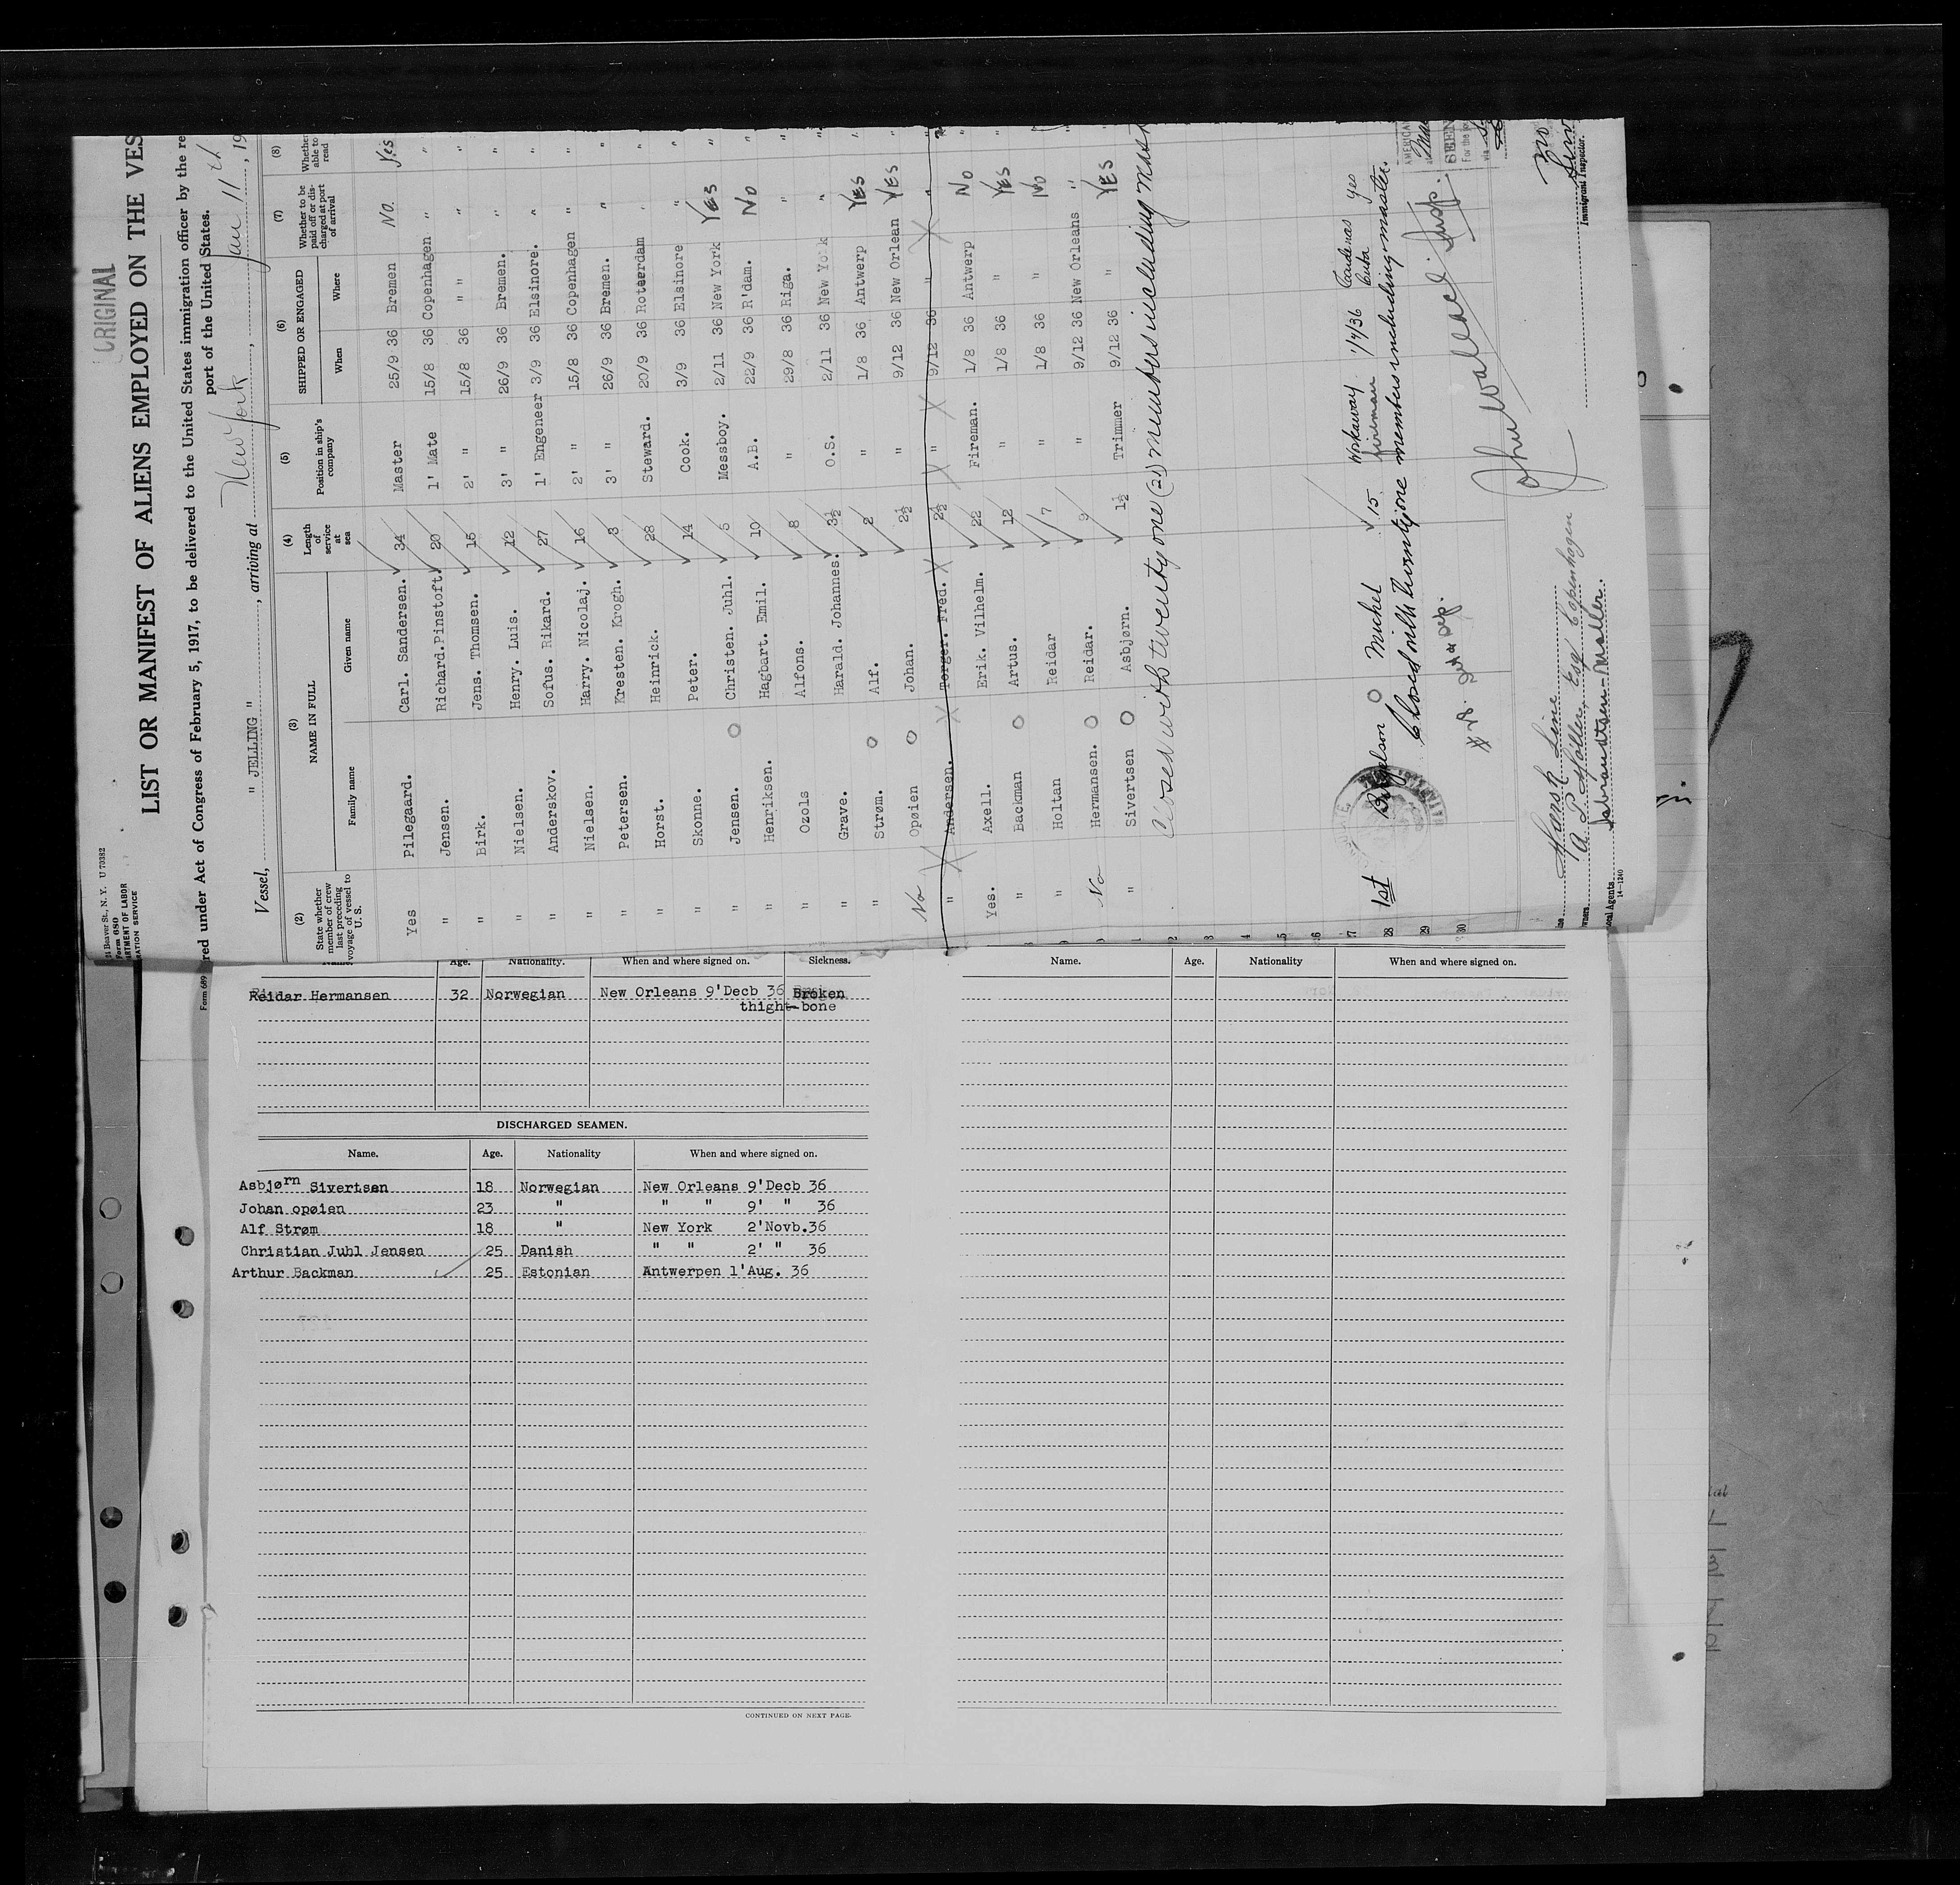 ORIGINAL
31 Beaver St., N. Y. U 70382
Form 680
LIST OR MANIFEST OF ALIENS EMPLOYED ON THE VES
red under Act of Congress of February 5, 1917, to be delivered to the United States immigration officer by the re
port of the United States.
Vessel, " JELLING ", arriving at New York, Jan 11th, 19
(2) State whether member of crew last preceding voyage of vessel to U. S.
(3) NAME IN FULL
Family name Given name
(4) Length of service at sea
(5) Position in ship's company
(6) SHIPPED OR ENGAGED
When Where
(7) Whether to be paid off or discharged at port of arrival
(8) Whether able to read
Yes Pilegaard. Carl. Sandersen. 34 Master 25/9 36 Bremen No. Yes
" Jensen. Richard.Pinstoft. 20 1' Mate 15/8 36 Copenhagen " "
" Birk. Jens. Thomsen. 15 2' " 15/8 36 " " " "
" Nielsen. Henry. Luis. 12 3' " 26/9 36 Bremen. " "
" Anderskov. Sofus. Rikard. 27 1' Engeneer 3/9 36 Elsinore. " "
" Nielsen. Harry. Nicolaj. 16 2' " 15/8 36 Copenhagen " "
" Petersen. Kresten. Krogh. 3 3' " 26/9 36 Bremen. " "
" Horst. Heinrick. 28 Steward. 20/9 36 Roterdam " "
" Skonne. Peter. 14 Cook. 3/9 36 Elsinore " "
" Jensen. Christen. Juhl. 5 Messboy. 2/11 36 New York Yes "
" Henriksen. Hagbart. Emil. 10 A.B. 22/9 36 R'dam. No "
" Ozols Alfons. 8 " 29/8 36 Riga. " "
" Grave. Harald. Johannes. 3½ O.S. 2/11 36 New York " "
" Strøm. Alf. 2 " 1/8 36 Antwerp Yes "
No Opøien Johan. 2½ " 9/12 36 New Orlean Yes "
" Andersen. Torger. Fred. 2½ " 9/12 36 " "
Yes. Axell. Erik. Vilhelm. 22 Fireman. 1/8 36 Antwerp No "
" Backman Artus. 12 " 1/8 36 " Yes "
" Holtan Reidar 7 " 1/8 36 " No
No Hermansen. Reidar. 9 " 9/12 36 New Orleans " "
" Sivertsen Asbjørn. 1½ Trimmer 9/12 36 " Yes "
Closed with twenty one (21) members including mast
1st Michel 15 Workaway fireman 1/4/36 Cardenas Cuba yes
Closed with twenty one members including master.
John Wallace Insp.
AMERICAN
SEEN
For the jo
via
27
28
29
30
Line
A P Møller, Esq Copenhagen
Local Agents
14—1240
Immigrant Inspector.
Form 689
Name. Age. Nationality. When and where signed on. Sickness.
Reidar Hermansen 32 Norwegian New Orleans 9'Decb 36 Broken
thight-bone
DISCHARGED SEAMEN.
Name. Age. Nationality When and where signed on.
Asbjørn Sivertsen 18 Norwegian New Orleans 9'Decb 36
Johan opøien 23 " " " 9' " 36
Alf Strøm 18 " New York 2'Novb.36
Christian Juhl Jensen 25 Danish " " 2' " 36
Arthur Backman 25 Estonian Antwerpen 1'Aug. 36
CONTINUED ON NEXT PAGE.
Name. Age. Nationality When and where signed on.